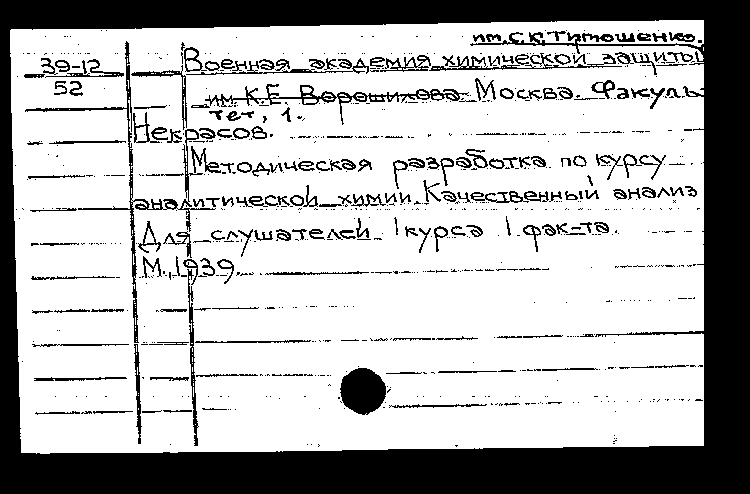 им. С.К. Тимошенко.
39-12 Военная академия химической защиты
52 им. К.Е. Ворошилова Москва. Факуль-
тет, 1.
Некрасов.
Методическая разработка по курсу
аналитической химии. Качественный анализ
Для слушателей 1 курса 1 фак-та.
М., 1939.